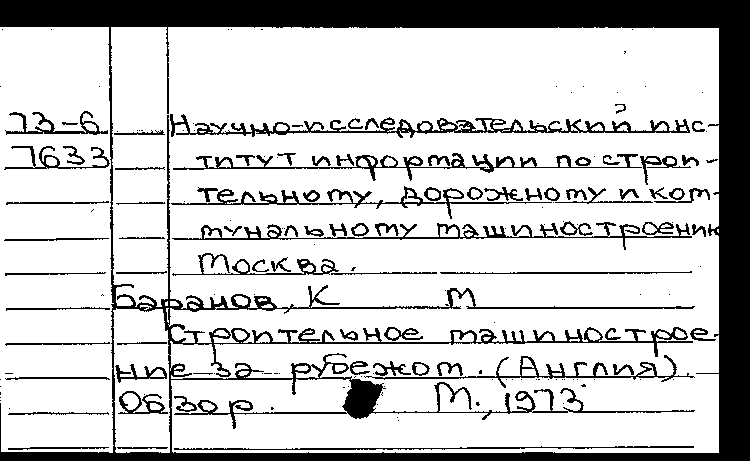 73-6 Научно-исследовательский инс-
7633 титут информации по строи-
тельному, дорожному и ком-
мунальному машиностроению
Москва.
Баранов, К М
Строительное машинострое-
ние за рубежом. (Англия).
Обзор. М., 1973